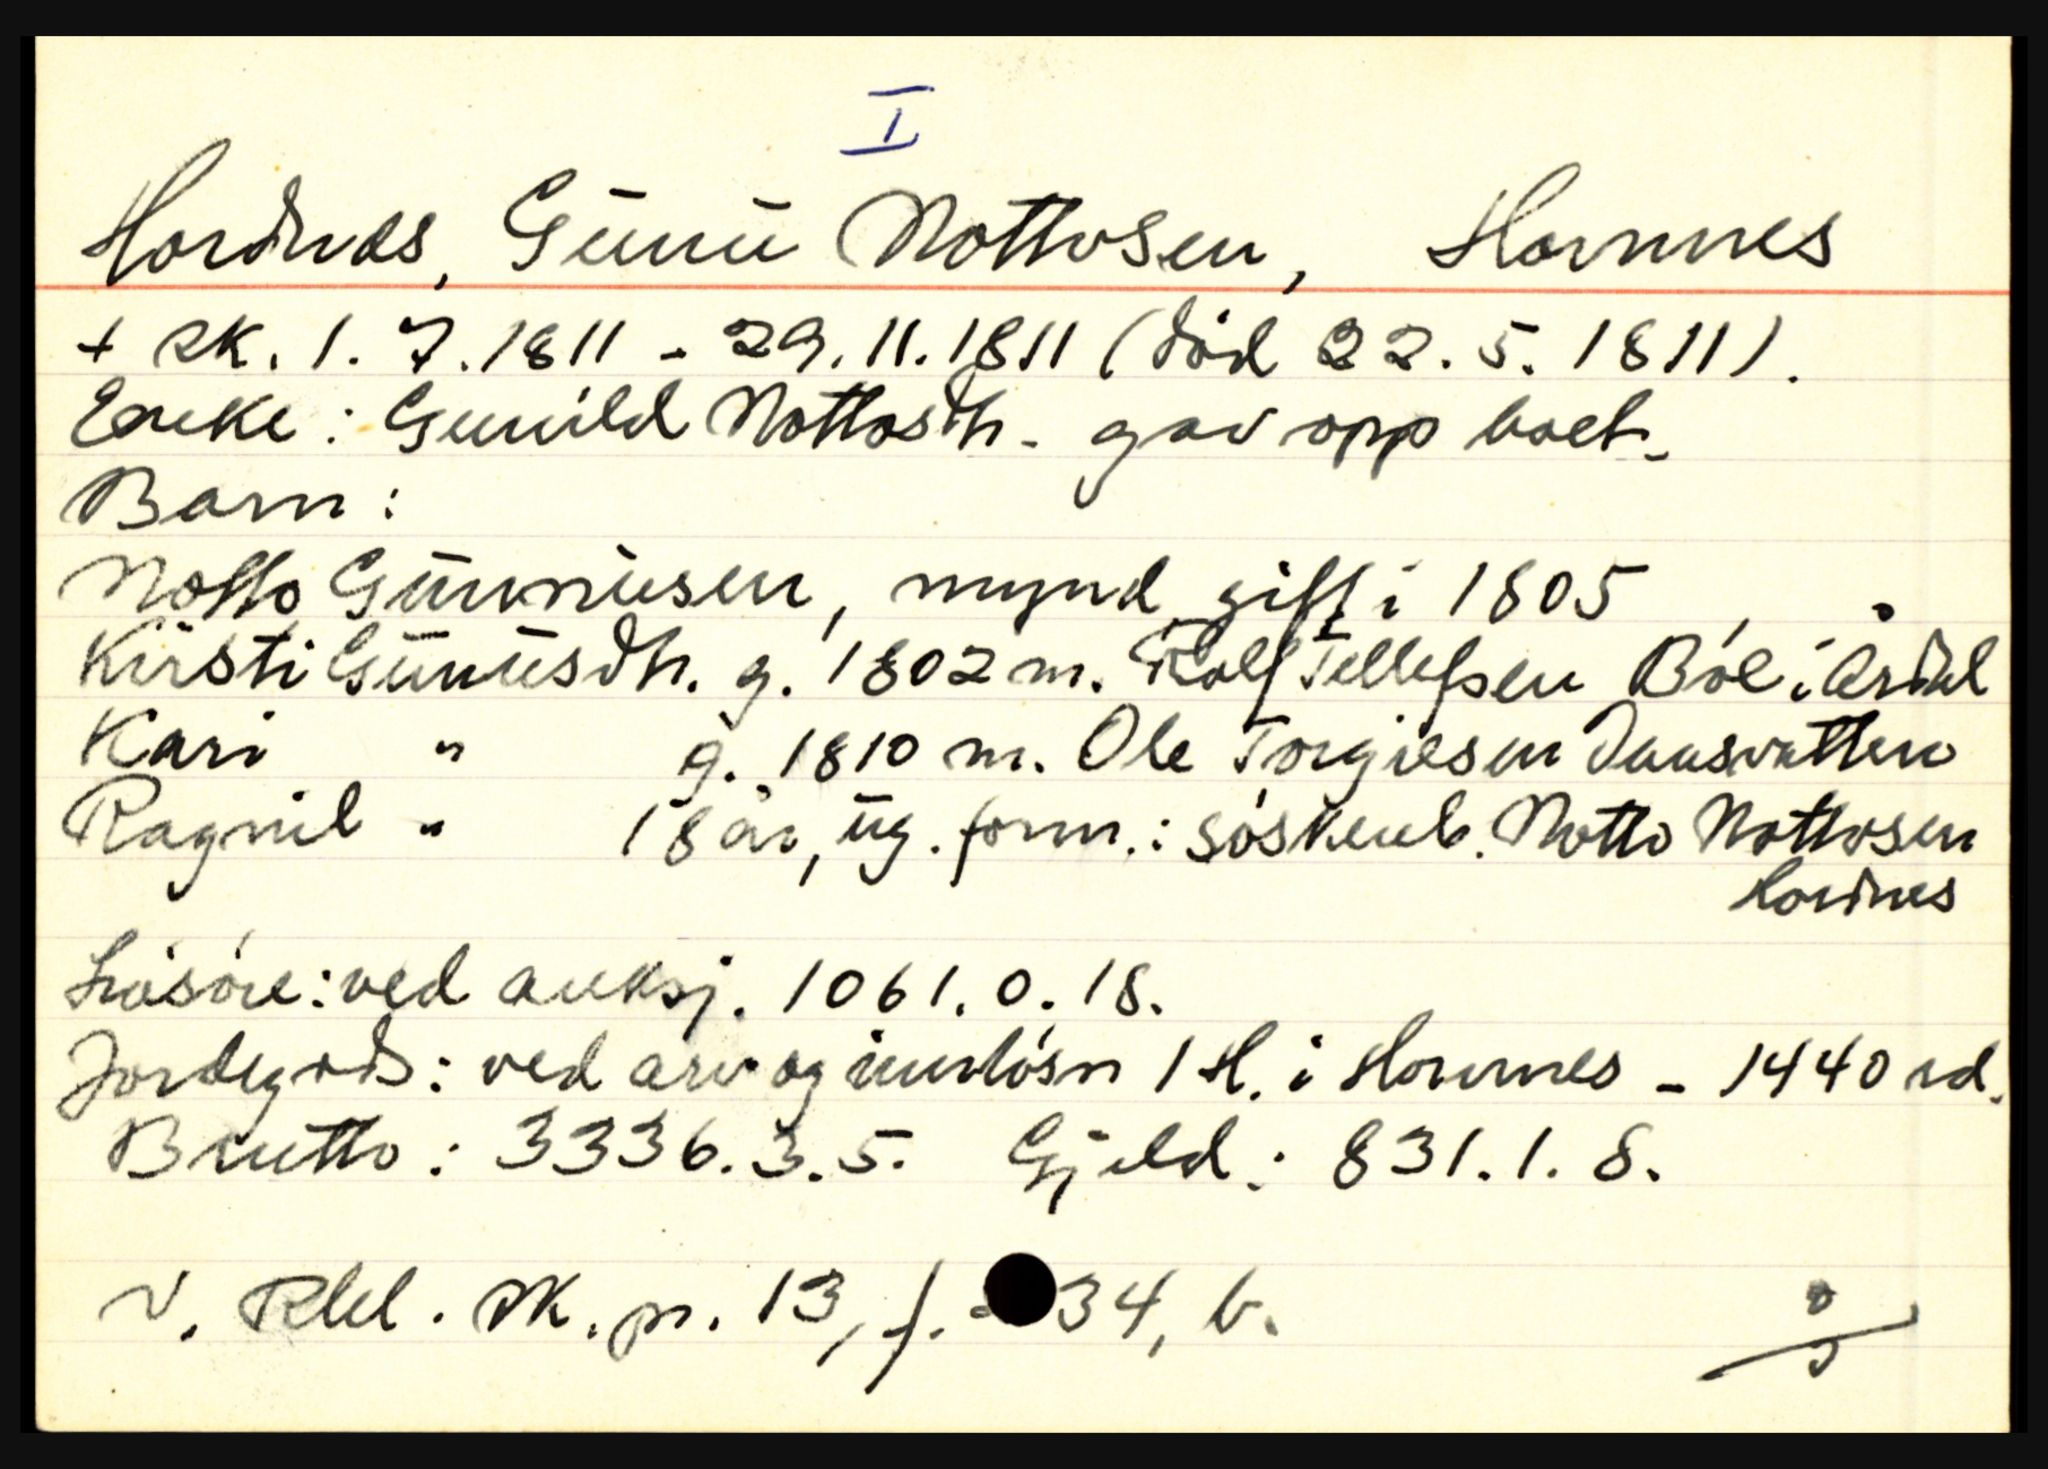 I
Hordnes, Gunu Nottosen, Hornnes
+ sk. 1. 7. 1811 - 29. 11. 1811 (död 22. 5. 1811).
Encke: Gunild Nottosdtr. gav opp boet.
Barn:
Notto Gunnusen, mynd, gift i 1805
Kirsti Gunusdtr. g. 1802 m. Rolf Tellefsen Böe i Årdal
Kari " g. 1810 m. Ole Torgiesen
Ragnil " 18 år, ug. form.: söskenb. Notto Nottosen
Hordnes
Lösöre: ved auksj. 1061. 0. 18.
Jordegods: ved arv og innlösn 1 H. i Hornnes - 1440 rd.
Brutto: 3336. 3. 5. Gjeld: 831. 1. 8.
V. Rbl. sk. pr. 13, f. 34, b.